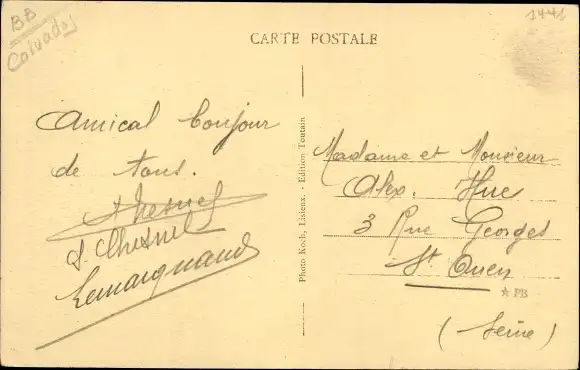 BB
Calvados
1441
CARTE POSTALE
Amical bonjour
de tous.
Chesnel
Chesnel
Lemarignand
Photo Koch, Lisieux. - Edition Toutain
Madame et Monsieur
Alex. Hue
3 Rue Georges
St Ouen
* PB
(Seine)